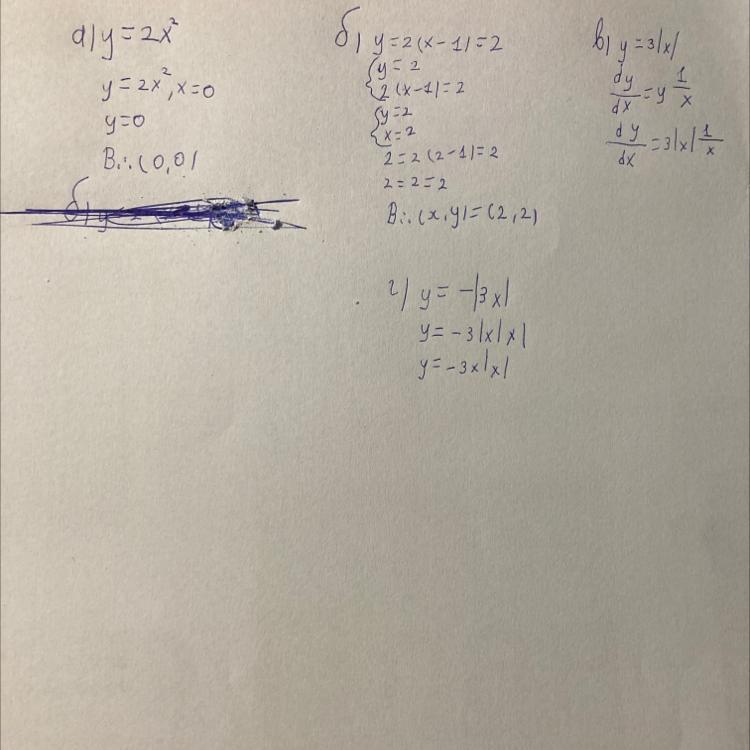 а) y = 2x²
y = 2x², x = 0
y = 0
В:. (0,0)
б) y = 2(x-1) = 2
{ y = 2
{ 2(x-1) = 2
{ y = 2
{ x = 2
2 = 2(2-1) = 2
2 = 2 = 2
В:. (x,y) = (2,2)
в) y = 3|x|
dy/dx = y 1/x
dy/dx = 3|x| 1/x
г) y = -|3x|
y = -3|x|x|
y = -3x|x|